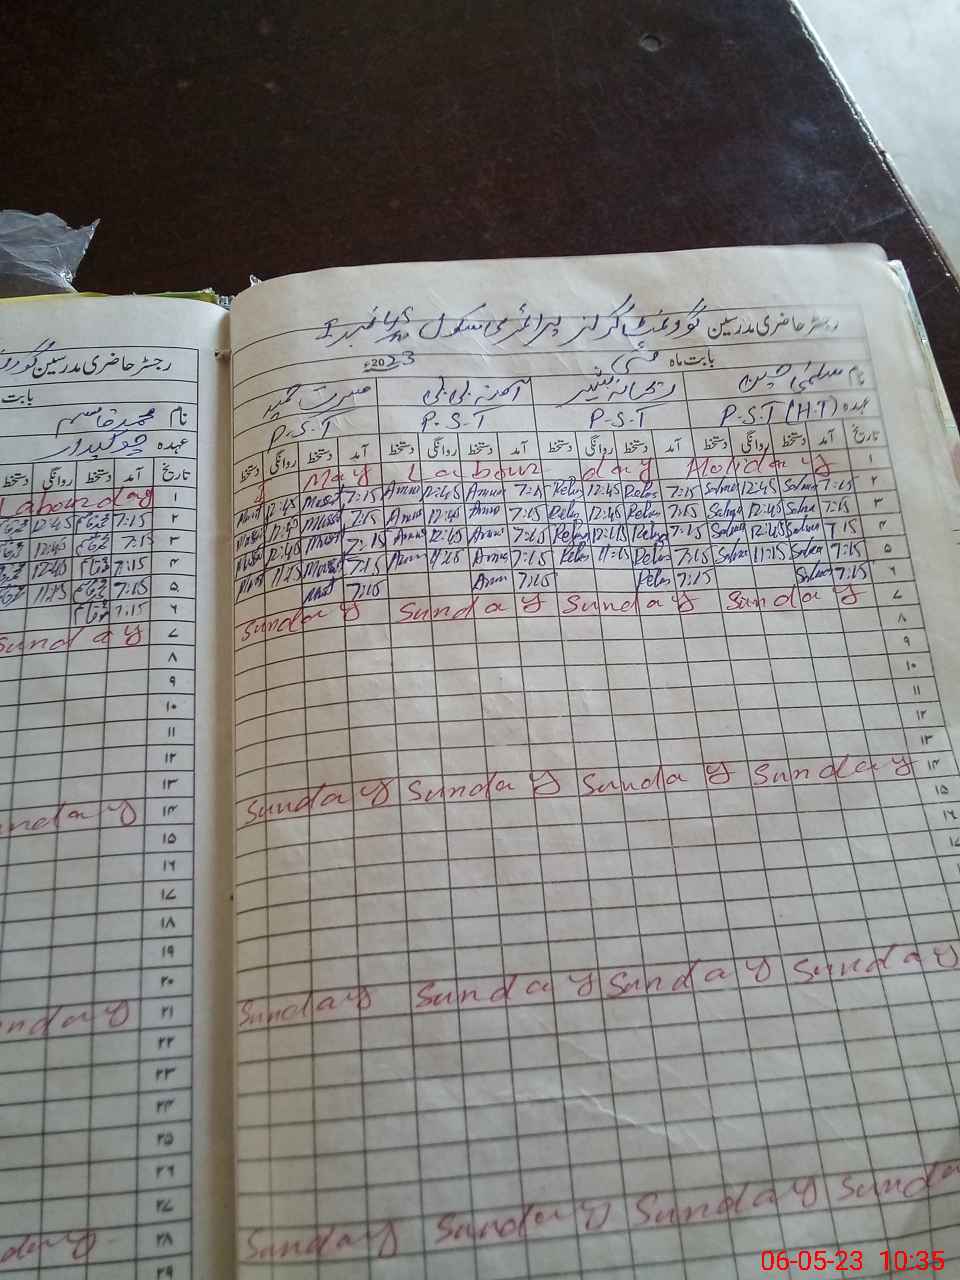 رجسٹر حاضری مدرسین گورنمنٹ گرلز پرائمری سکول نمبر 1
بابت ماہ مئی 2023ء
نام سلمیٰ آمنہ بی بی مسرت
عہدہ P.S.T (H.T) P.S.T P.S.T P.S.T
تاریخ آمد دستخط روانگی دستخط آمد دستخط روانگی دستخط آمد دستخط روانگی دستخط آمد دستخط روانگی دستخط
۱ 1 May Labour day Holiday
۲ 7:15 Salma 12:45 Salma 7:15 Rehan 12:45 Rehan 7:15 Amna 12:45 Amna 7:15 12:45
۳ 7:15 Salma 12:45 Salma 7:15 Rehan 12:45 Rehan 7:15 Amna 12:45 Amna 7:15 12:45
۴ 7:15 Salma 12:45 Salma 7:15 Rehan 12:45 Rehan 7:15 Amna 12:45 Amna 7:15 12:45
۵ 7:15 Salma 11:15 Salma 7:15 Rehan 11:15 Rehan 7:15 Amna 11:15 Amna 7:15 11:15
۶ 7:15 Salma 7:15 Rehan 7:15 Amna 7:15
۷ Sunday Sunday Sunday Sunday
۸
۹
۱۰
۱۱
۱۲
۱۳
۱۴ Sunday Sunday Sunday Sunday
۱۵
۱۶
Sunday Sunday Sunday Sunday
Sunday Sunday Sunday Sund
رجسٹر حاضری مدرسین گورنمنٹ
بابت
نام محمد قاسم
عہدہ چوکیدار
تاریخ آمد دستخط روانگی دستخط
۱ Labour day
۲ 7:15 12:45
۳ 7:15 12:45
۴ 7:15 12:45
۵ 7:15 11:15
۶ 7:15
۷ Sunday
۸
۹
۱۰
۱۱
۱۲
۱۳
۱۴ unday
۱۵
۱۶
۱۷
۱۸
۱۹
۲۰
۲۱ nday
۲۲
۲۳
۲۴
۲۵
۲۶
۲۷
۲۸ day
۲۹
06-05-23 10:35